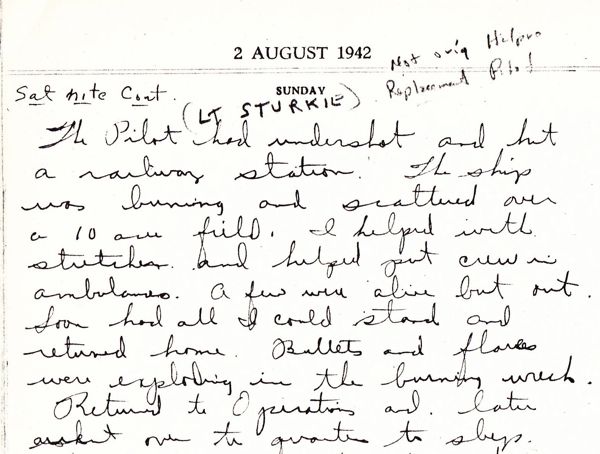 2 AUGUST 1942
Not orig Halpro
Replacement Pilot
SUNDAY
Sat nite Cont.
(LT STURKIE)
The Pilot had undershot and hit
a railway station. The ship
was burning and scattered over
a 10 acre field. I helped with
stretcher and helped put crew in
ambulances. A few were alive but out.
Soon had all I could stand and
returned home. Bullets and flares
were exploding in the burning wreck.
Returned to Operations and later
over to quarters to sleep.